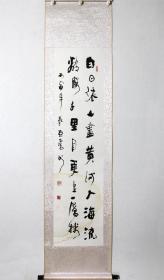 白日依山盡黄河入海流
欲窮千里目更上一層楼